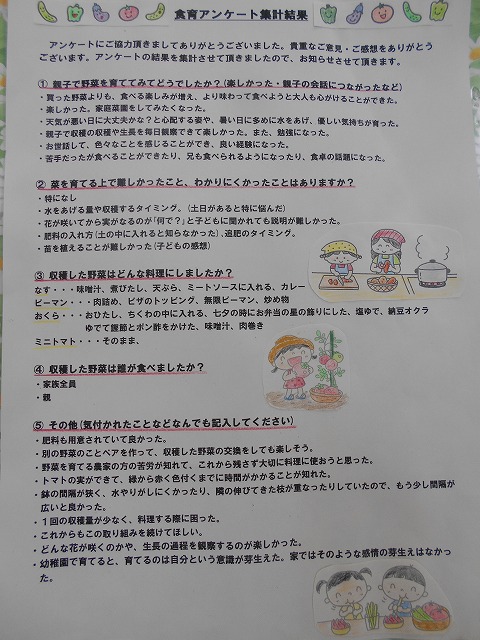 食育アンケート集計結果
アンケートにご協力頂きましてありがとうございました。貴重なご意見・ご感想をありがとう
ございます。アンケートの結果を集計させて頂きましたので、お知らせさせて頂きます。
① 親子で野菜を育ててみてどうでしたか？（楽しかった・親子の会話につながったなど）
・買った野菜よりも、食べる楽しみが増え、より味わって食べようと大人も心がけることができた。
・楽しかった。家庭菜園をしてみたくなった。
・天気が悪い日に大丈夫かな？と心配する姿や、暑い日に多めに水をあげ、優しい気持ちが育った。
・親子で収穫の収穫や生長を毎日観察できて楽しかった。また、勉強になった。
・お世話して、色々なことを感じることができ、良い経験になった。
・苦手だったが食べることができたり、兄も食べられるようになったり、食卓の話題になった。
② 菜を育てる上で難しかったこと、わかりにくかったことはありますか？
・特になし
・水をあげる量や収穫するタイミング。（土日があると特に悩んだ）
・花が咲いてから実がなるのが「何で？」と子どもに聞かれても説明が難しかった。
・肥料の入れ方（土の中に入れると知らなかった）、追肥のタイミング。
・苗を植えることが難しかった（子どもの感想）
③ 収穫した野菜はどんな料理にしましたか？
なす・・・味噌汁、煮びたし、天ぷら、ミートソースに入れる、カレー
ピーマン・・・肉詰め、ピザのトッピング、無限ピーマン、炒め物
おくら・・・おひたし、ちくわの中に入れる、七夕の時にお弁当の星の飾りにした、塩ゆで、納豆オクラ
ゆでて鰹節とポン酢をかけた、味噌汁、肉巻き
ミニトマト・・・そのまま、
④ 収穫した野菜は誰が食べましたか？
・家族全員
・親
⑤ その他（気付かれたことなどなんでも記入してください）
・肥料も用意されていて良かった。
・別の野菜のことペアを作って、収穫した野菜の交換をしても楽しそう。
・野菜を育てる農家の方の苦労が知れて、これから残さず大切に料理に使おうと思った。
・トマトの実ができて、緑から赤く色付くまでに時間がかかることが知れた。
・鉢の間隔が狭く、水やりがしにくかったり、隣の伸びてきた枝が重なったりしていたので、もう少し間隔が
広いと良かった。
・１回の収穫量が少なく、料理する際に困った。
・これからもこの取り組みを続けてほしい。
・どんな花が咲くのかや、生長の過程を観察するのが楽しかった。
・幼稚園で育てると、育てるのは自分という意識が芽生えた。家ではそのような感情の芽生えはなかっ
た。